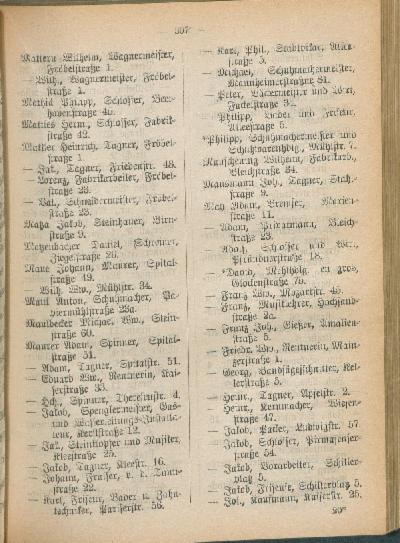 307
Mattern Wilhelm, Wagnermeister,
Fröbelstraße 1.
— Wilh., Wagnermeister, Fröbel-
straße 1.
Mathis Philipp, Schlosser,
straße 42.
Matthes Herm., Schlosser, Fabrik-
straße 42.
Mattheß Heinrich, Tagner, Fröbel-
straße 1.
— Jak., Tagner, Friedenstr. 48.
— Lorenz, Fabrikarbeiter, Fröbel-
straße 23.
— Val., Schneidermeister, Fröbel-
straße 23.
Matza Jakob, Steinhauer,
straße 5.
Matzenbacher Daniel, Schreiner,
Ziegelstraße 26.
Maue Johann, Maurer, Spital-
straße 49.
— Wilh. Ww., Mühlstr. 34.
Maul Anton, Schuhmacher, Pa-
piermühlstraße 23a.
Maulbecker Michael Ww., Stein-
straße 60.
Maurer Adam, Spinner, Spital-
straße 51.
— Adam, Tagner, Spitalstr. 51.
— Eduard Ww., Rentnerin, Kai-
serstraße 33.
— Hch., Spinner, Theresienstr. 4.
— Jakob, Spenglermeister, Gas-
und Wasserleitungs-Installa-
teur, Kerststraße 12.
— Jak., Steinklopfer und Musiker,
Kleestraße 25.
— Jakob, Tagner, Kleestr. 16.
— Johann, Fraiser, v. d. Tann-
straße 22.
— Karl, Friseur, Bader u. Zahn-
techniker, Pariserstr. 56.
— Karl, Phil., Stadtvikar,
straße 5.
— Michael, Schuhmachermeister,
Mannheimerstraße 31.
— Peter, Bäckermeister und Wirt,
straße 32.
— Philipp, Bader und Friseur,
Alleestraße 5.
*Philipp, Schuhmachermeister und
Schuhwarenhdlg., Mühlstr. 7.
Wilhelm, Fabrikarb.,
Bleichstraße 34.
Mausmann Joh., Tagner, Stahl-
straße 9.
May Adam, Marien-
straße 11.
— Adam, Bleich-
straße 23.
— Adolf, Schlosser und Wirt,
Pirmasenserstraße 18.
— *David, Mehlhdlg. en gros,
Glockenstraße 75.
— Franz Ww., Mozartstr. 46.
— Franz, Musiklehrer, Hochsand-
straße 2a.
— Franz Jos., Gießer, Amalien-
straße 5.
— Friedr. Ww., Rentnerin, Main-
zerstraße 1.
— Georg, Bandsägeschneider, Kel-
lerstraße 5.
— Heinr., Tagner, Apfelstr. 2.
— Heinr., Kernmacher, Wiesen-
straße 47.
— Jakob, Packer, Ludwigstr. 57.
— Jakob, Schlosser, Pirmasenser-
straße 54.
— Jakob, Vorarbeiter, Schiller-
platz 5.
— Jakob, Friseuse, Schillerplatz 5.
— Joh., Kaufmann, Kaiserstr. 25.
20*